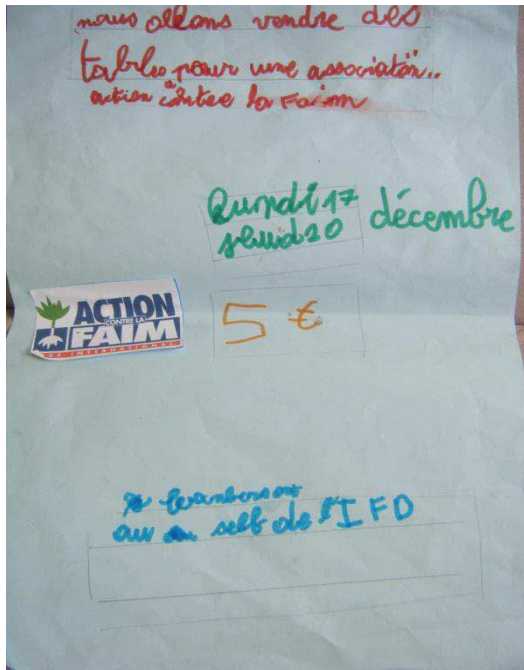 nous allons vendre des
pour une association..
action contre la Faim
Lundi 17 décembre
Jeudi 20
ACTION
CONTRE LA
FAIM
ACF INTERNATIONAL
5 €
au self de l'IFD